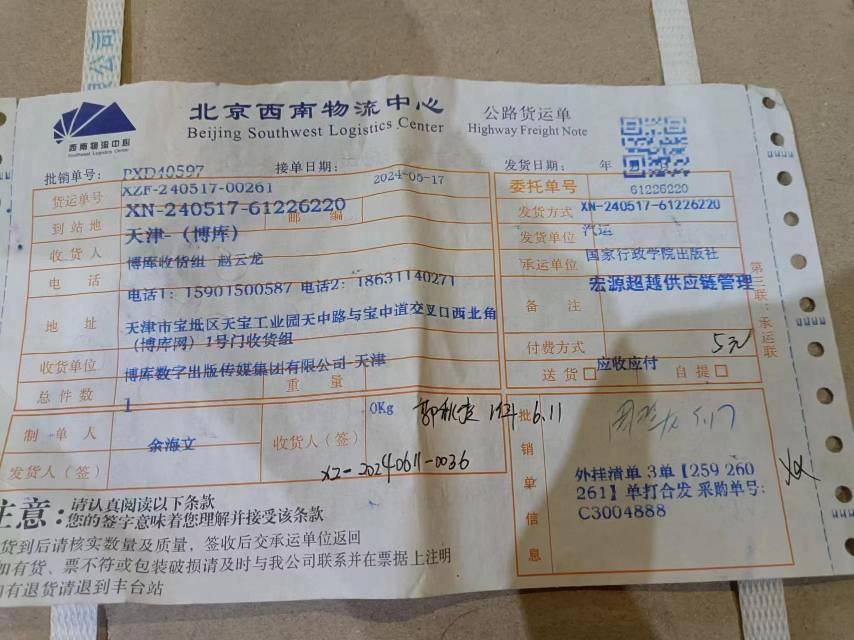 限公司
西南物流中心
Southwest Logistics Center
北京西南物流中心
Beijing Southwest Logistics Center
公路货运单
Highway Freight Note
批销单号: PXD40597 接单日期: 2024-05-17 发货日期: 年
货运单号 XZF-240517-00261
XN-240517-61226220
邮编
委托单号 61226220
到站地 天津-(博库)
发货方式 XN-240517-61226220
汽运
收货人 博库收货组 赵云龙
发货单位 国家行政学院出版社
电话 电话1: 15901500587 电话2: 18631140271
承运单位 宏源超越供应链管理
地址 天津市宝坻区天宝工业园天中路与宝中道交叉口西北角
(博库网)1号门收货组
备注
收货单位 博库数字出版传媒集团有限公司-天津
付费方式 应收应付
5元
总件数 1 重量 0Kg
送货 自提
第三联:承运联
制单人 余海文
收货人(签)
1件 6.11
5.17
发货人(签)
XZ-20240611-0036
批销单信息
外挂清单 3单【259 260
261】单打合发 采购单号:
C3004888
注意:
请认真阅读以下条款
您的签字意味着您理解并接受该条款
货到后请核实数量及质量,签收后交承运单位返回
如有货、票不符或包装破损请及时与我公司联系并在票据上注明
如有退货请退到丰台站